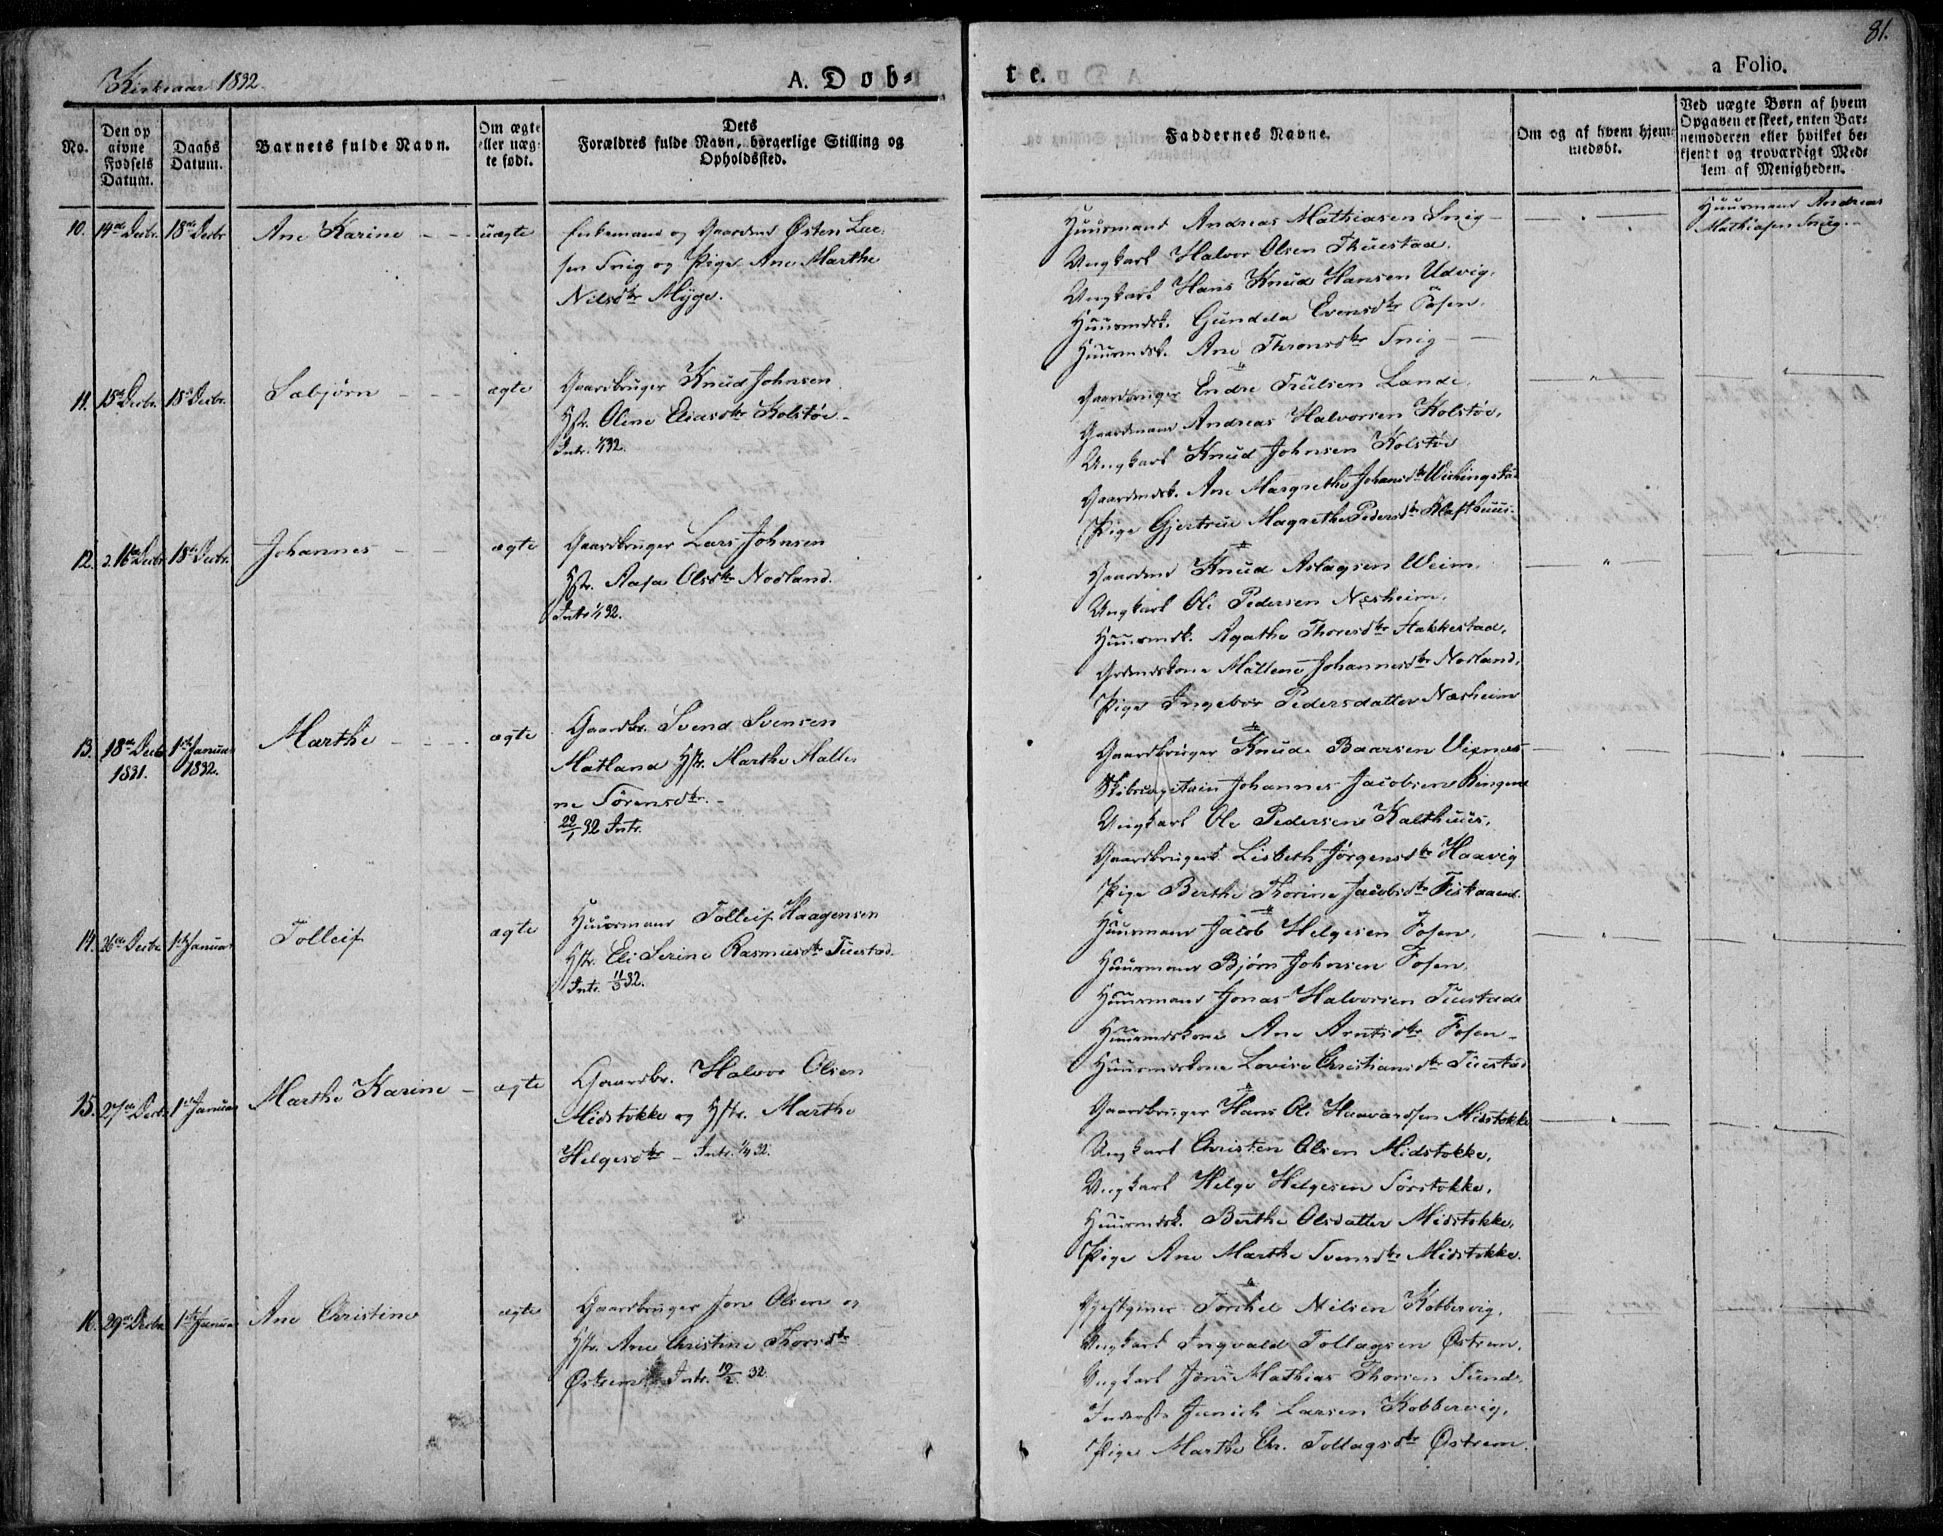 81.
Kirkeaar 1832.
A. Døb-
te.
a Folio.
No.
Den op
givne
Fødsels
Datum.
Daabs
Datum.
Barnets fulde Navn.
Om ægte
eller uæg-
te født.
Dets
Forældres fulde Navn, borgerlige Stilling og
Opholdssted.
Faddernes Navne.
Om og af hvem hjem-
medøbt.
Ved uægte Børn af hvem
Opgaven er skeet, enten Bar-
nemoderen eller hvilket be-
kjendt og troværdigt Med-
lem af Menigheden.
10.
14de Decbr.
18de Decbr
Ane Karine
uægte
Enkemand og Gaardmd Østen Lar-
sen Snig og Pige Ane Marthe
Nilsdtr Myge.
Huusmand Andreas Mathiasen Snig
Ungkarl Halvor Olsen Thuestad.
Ungkarl Hans Knud Hansen Udvig.
Huusmdsk. Gundela Evensdtr Fosen.
Huusmdsk. Ane Thronsdtr Snig
Huusmand Andreas
Mathiasen Snig.
11.
15de Decbr.
18de Decbr.
Sæbjørn
ægte
Gaardbruger Knud Johnsen
Hstr. Olene Eliasdtr Kolstøe
Intr. 1/4 32.
Gaardbruger Endre Trulsen Lande.
Gaardmand Andreas Halvorsen Kolstøe.
Ungkarl Knud Johnsen Kolstøe
Gaardmdsk. Ane Margrethe Johansdtr Wichingstad
Pige Gjertrue Magrethe Pedersdtr
12.
16de Decbr
18de Decbr.
Johannes
ægte
Gaardbruger Lars Johnsen
Hstr. Aasa Olsdtr Nordland.
Intr 1/4 32.
Gaardmd Knud Aslagsen Weim.
Ungkarl Ole Pedersen Næsheim.
Huusmdsk. Agathe Thoresdtr Stakkestad.
Grdmdskone Mallene Johannesdtr Nordland.
Pige Ingebor Pedersdatter Næsheim
13.
18de Decbr
1831.
1ste Januar
1832.
Marthe
ægte
Gaardbr. Svend Svensen
Matland Hstr. Marthe Malle-
ne Sørensdtr.
22/1 32 Intr.
Gaardbruger Knud Baarsen Visnes
Skibscapitain Johannes Jacobsen Ringen
Ungkarl Ole Pedersen Kalthuus.
Gaardbrugersk. Lisbeth Jørgensdtr Haavig
Pige Berthe Thorine Jacobsdtr Fiskaaen.
14.
26de Decbr
1ste Januar
Tolleif
ægte
Huusmand Tolleif Haagensen
Hstr. Eli Serine Rasmusdtr Tuestad.
Intr. 11/3 32.
Huusmand Jacob Helgesen Fosen.
Huusmand Bjørn Johnsen Fosen.
Huusmand Jonas Halvorsen Tuestad
Huusmdskone Ane Arntsdtr Fosen
Huusmdskone Lovise Christiansdtr Tuestad
15.
27de Decbr
1ste Januar
Marthe Karine
ægte
Gaardbr. Halvor Olsen
Midstokke og Hstr. Marthe
Helgesdtr Intr. 1/4 32.
Gaardbruger Hans Ole Haavardsen Midstokke
Ungkarl Christen Olsen Midstokke.
Ungkarl Helge Helgesen Sørstokke.
Huusmdsk. Berthe Olsdatter Midstokke.
Pige Ane Marthe Svensdtr Midstokke.
16.
29de Decbr
1ste Januar
Ane Christine
ægte
Gaardbruger Jon Olsen og
Hstr. Ane Christine Thorsdtr
Østrem Intr. 19/2. 32.
Gjestgiver Torckel Nilsen Kobbervig.
Ungkarl Ingvald Tollagsen Østrem.
Ungkarl Jøns Mathias Thorsen Sund.
Inderste Jenich Larsen Kobbervig.
Pige Marthe Chr. Tollagsdtr Østrem.